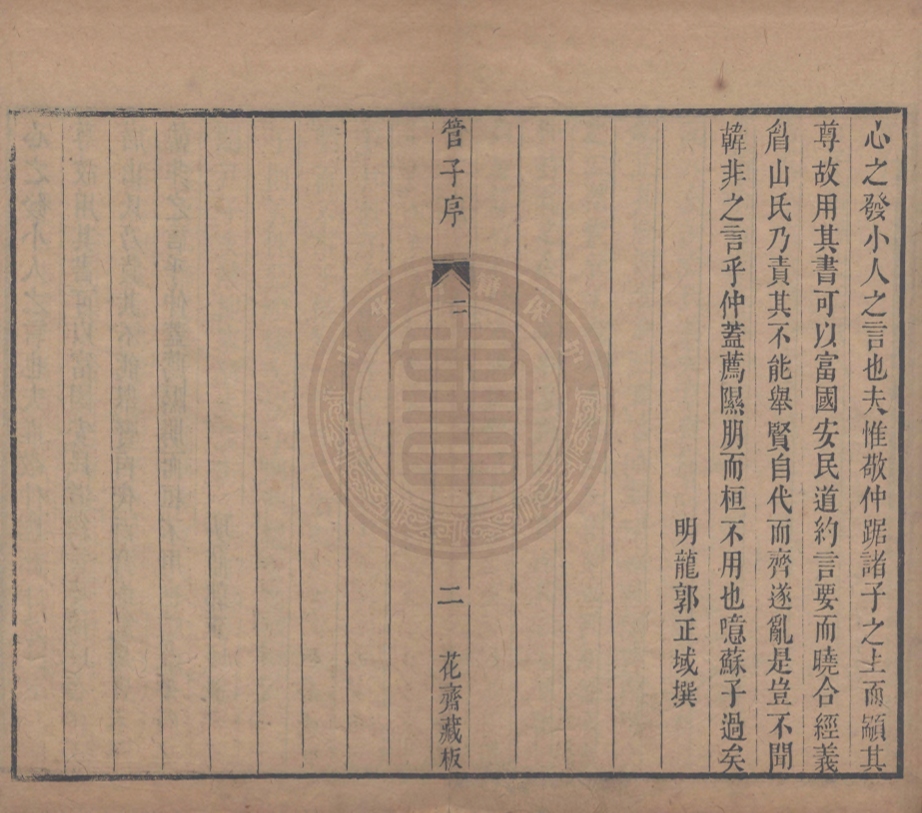 心之發小人之言也夫惟敬仲踞諸子之上而顓其
尊故用其書可以富國安民道約言要而曉合經義
眉山氏乃責其不能舉賢自代而齊遂亂是豈不聞
韓非之言乎仲蓋薦隰朋而桓不用也噫蘇子過矣
明龍郭正域撰
管子序 二 二 花齋藏板